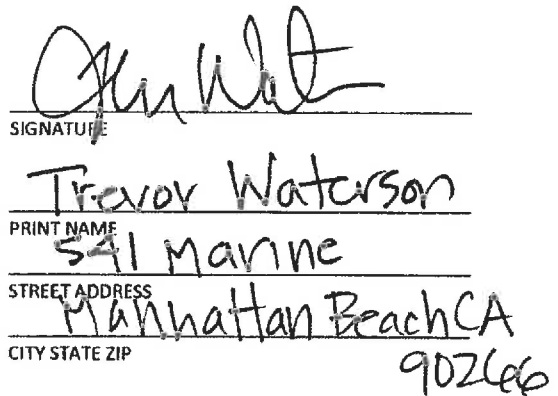 SIGNATURE
Trevor Waterson
PRINT NAME
541 Marine
STREET ADDRESS
Manhattan Beach CA
CITY STATE ZIP
90266